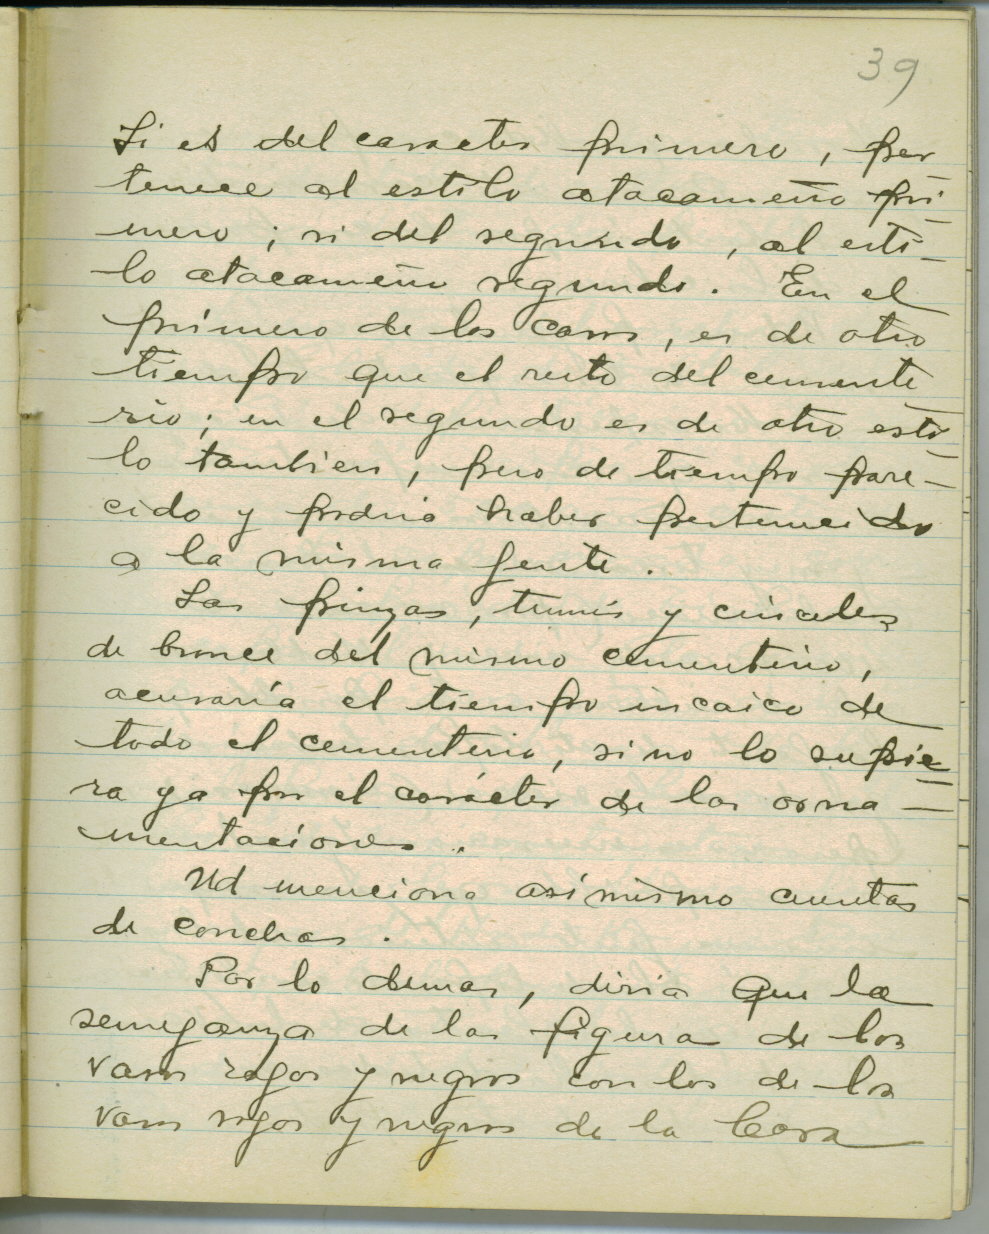 39
Si es del caracter primero, per-
tenece al estilo atacameño pri-
mero; si del segundo, al esti-
lo atacameño segundo. En el
primero de los casos, es de otro
tiempo que el resto del cemente
rio; en el segundo es de otro esti-
lo tambien, pero de tiempo pare-
cido y podria haber pertenecido
a la misma gente.
Las pinzas, tumis y cinceles
de bronce del mismo cementerio,
acusaría el tiempo incaico de
todo el cementerio, si no lo supie-
ra ya por el carácter de las orna-
mentaciones.
Ud menciona asi mismo cuentas
de conchas.
Por lo demas, diria que la
semejanza de las figura de los
vasos rojos y negros con los de los
vasos rojos y negros de la